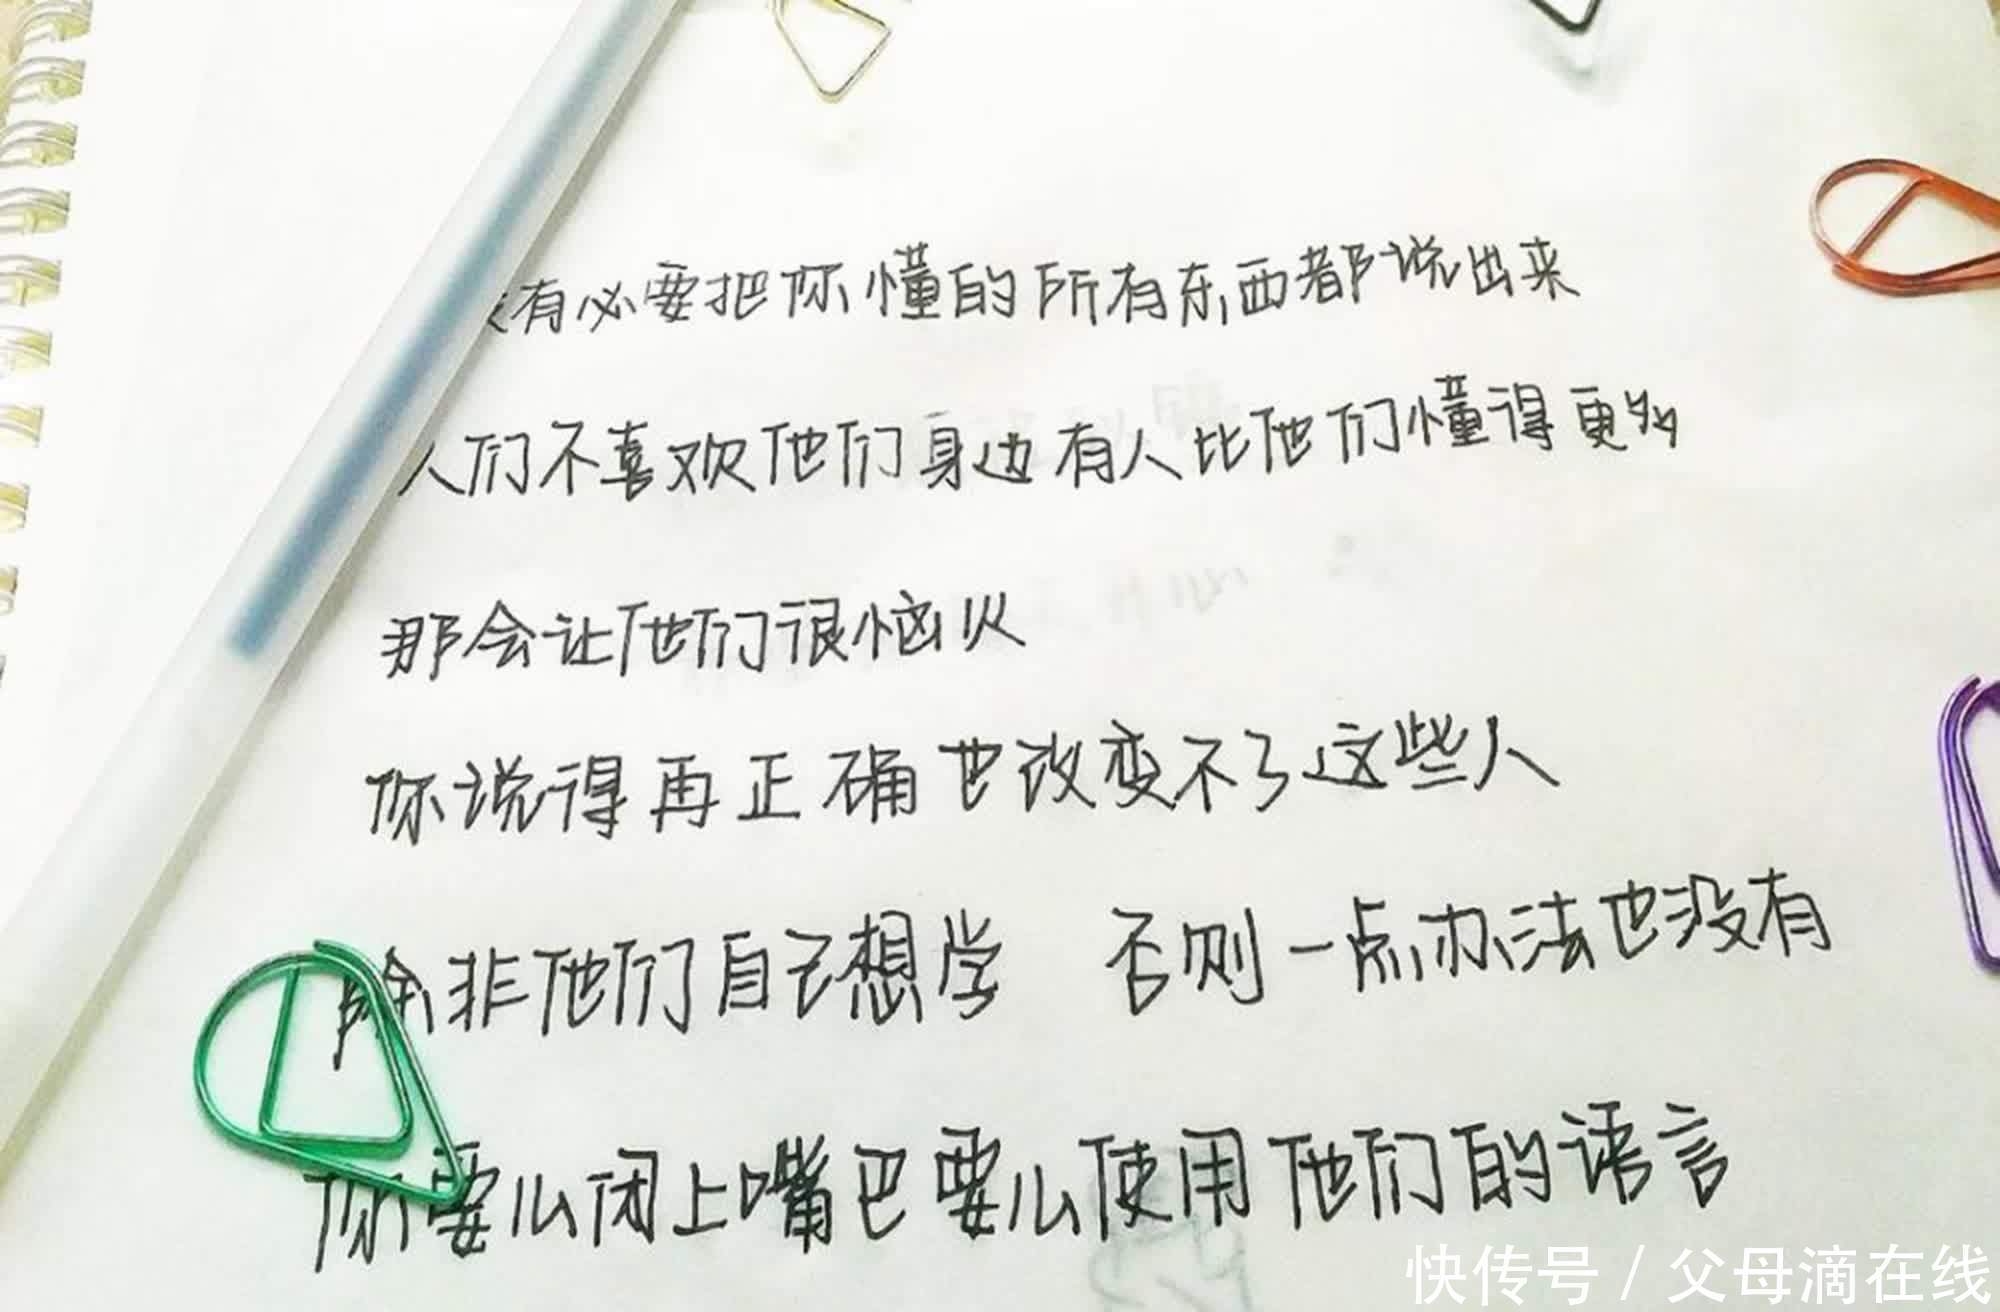 没有必要把你懂的所有东西都说出来
人们不喜欢他们身边有人比他们懂得更多
那会让他们很恼火
你说得再正确也改变不了这些人
除非他们自己想学 否则一点办法也没有
你要么闭上嘴巴要么使用他们的语言
快传号 / 父母滴在线